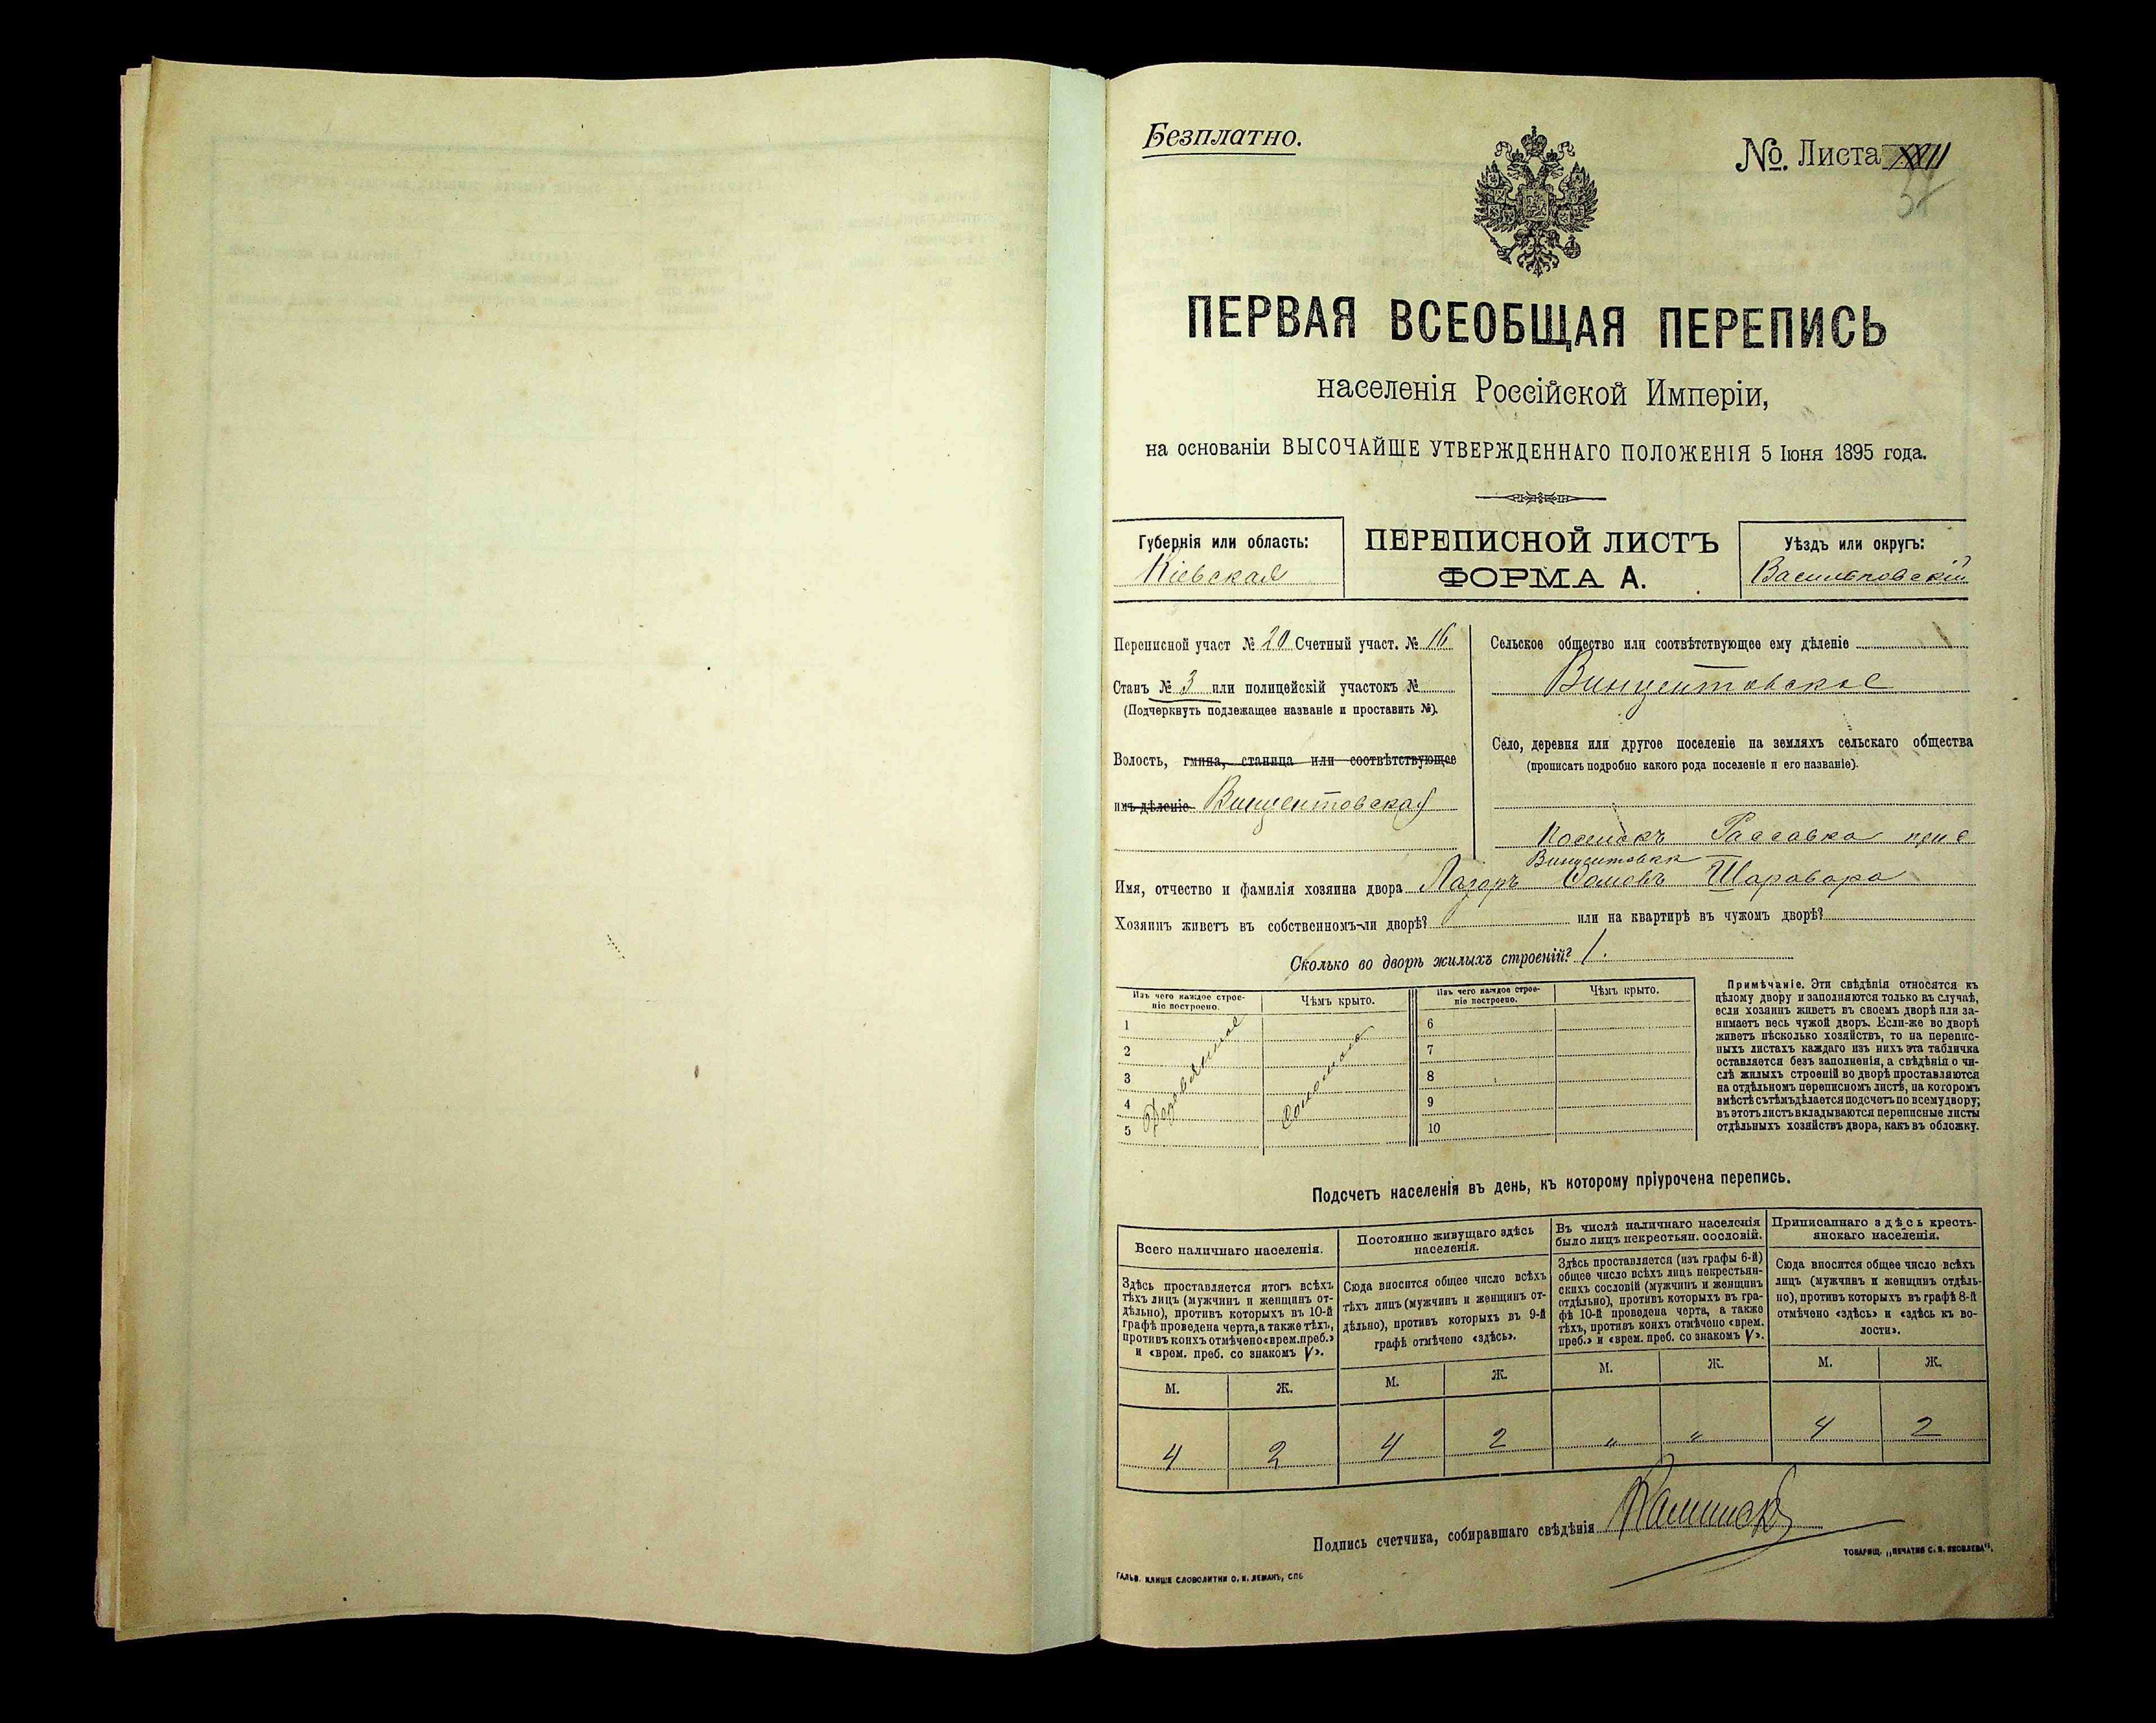 Безплатно.
№ Листа XXII
37
ПЕРВАЯ ВСЕОБЩАЯ ПЕРЕПИСЬ
населенія Россійской Имперіи,
на основаніи ВЫСОЧАЙШЕ УТВЕРЖДЕННАГО ПОЛОЖЕНІЯ 5 Іюня 1895 года.
Губернія или область:
Кіевская
ПЕРЕПИСНОЙ ЛИСТЪ
ФОРМА А.
Уѣздъ или округъ:
Васильковскій
Переписной участ № 20 Счетный участ. № 16
Станъ № 3 или полицейскій участокъ №
(Подчеркнуть подлежащее названіе и проставить №).
Волость, гмина, станица или соотвѣтствующее
имъ дѣленіе. Винцентовская
Сельское общество или соотвѣтствующее ему дѣленіе
Винцентовское
Село, деревня или другое поселеніе на земляхъ сельскаго общества
(прописать подробно какого рода поселеніе и его названіе).
Поселокъ Рассавка при с
Винцентовкѣ
Имя, отчество и фамилія хозяина двора Лазарь Шаравара
Хозяинъ живетъ въ собственномъ-ли дворѣ? или на квартирѣ въ чужомъ дворѣ?
Сколько во дворѣ жилыхъ строеній? 1.
Изъ чего каждое строе-
ніе построено.
Чѣмъ крыто.
Изъ чего каждое строе-
ніе построено.
Чѣмъ крыто.
1
2
3
4
5
Деревянное
Соломою
6
7
8
9
10
Примѣчаніе. Эти свѣдѣнія относятся къ
цѣлому двору и заполняются только въ случаѣ,
если хозяинъ живетъ въ своемъ дворѣ или за-
нимаетъ весь чужой дворъ. Если-же во дворѣ
живетъ нѣсколько хозяйствъ, то на перепис-
ныхъ листахъ каждаго изъ нихъ эта табличка
оставляется безъ заполненія, а свѣдѣнія о чи-
слѣ жилыхъ строеній во дворѣ проставляются
на отдѣльномъ переписномъ листѣ, на которомъ
вмѣстѣ съ тѣмъ дѣлается подсчетъ по всему двору;
въ этотъ листъ вкладываются переписные листы
отдѣльныхъ хозяйствъ двора, какъ въ обложку.
Подсчетъ населенія въ день, къ которому пріурочена перепись.
Всего наличнаго населенія.
Здѣсь проставляется итогъ всѣхъ
тѣхъ лицъ (мужчинъ и женщинъ от-
дѣльно), противъ которыхъ въ 10-й
графѣ проведена черта, а также тѣхъ,
противъ коихъ отмѣчено «врем. преб.»
и «врем. преб. со знакомъ V».
Постоянно живущаго здѣсь
населенія.
Сюда вносится общее число всѣхъ
тѣхъ лицъ (мужчинъ и женщинъ от-
дѣльно), противъ которыхъ въ 9-й
графѣ отмѣчено «здѣсь».
Въ числѣ наличнаго населенія
было лицъ некрестьян. сословій.
Здѣсь проставляется (изъ графы 6-й)
общее число всѣхъ лицъ некрестьян-
скихъ сословій (мужчинъ и женщинъ
отдѣльно), противъ которыхъ въ гра-
фѣ 10-й проведена черта, а также
тѣхъ, противъ коихъ отмѣчено «врем.
преб.» и «врем. преб. со знакомъ V».
Приписаннаго здѣсь кресть-
янскаго населенія.
Сюда вносится общее число всѣхъ
лицъ (мужчинъ и женщинъ отдѣль-
но), противъ которыхъ въ графѣ 8-й
отмѣчено «здѣсь» и «здѣсь къ во-
лости».
М. Ж. М. Ж. М. Ж. М. Ж.
4 2 4 2 " " 4 2
Подпись счетчика, собиравшаго свѣдѣнія
ГАЛЬВ. КЛИШЕ СЛОВОЛИТНИ О. И. ЛЕМАНЪ, СПБ
ТОВАРИЩ. „ПЕЧАТНЯ С. П. ЯКОВЛЕВА".